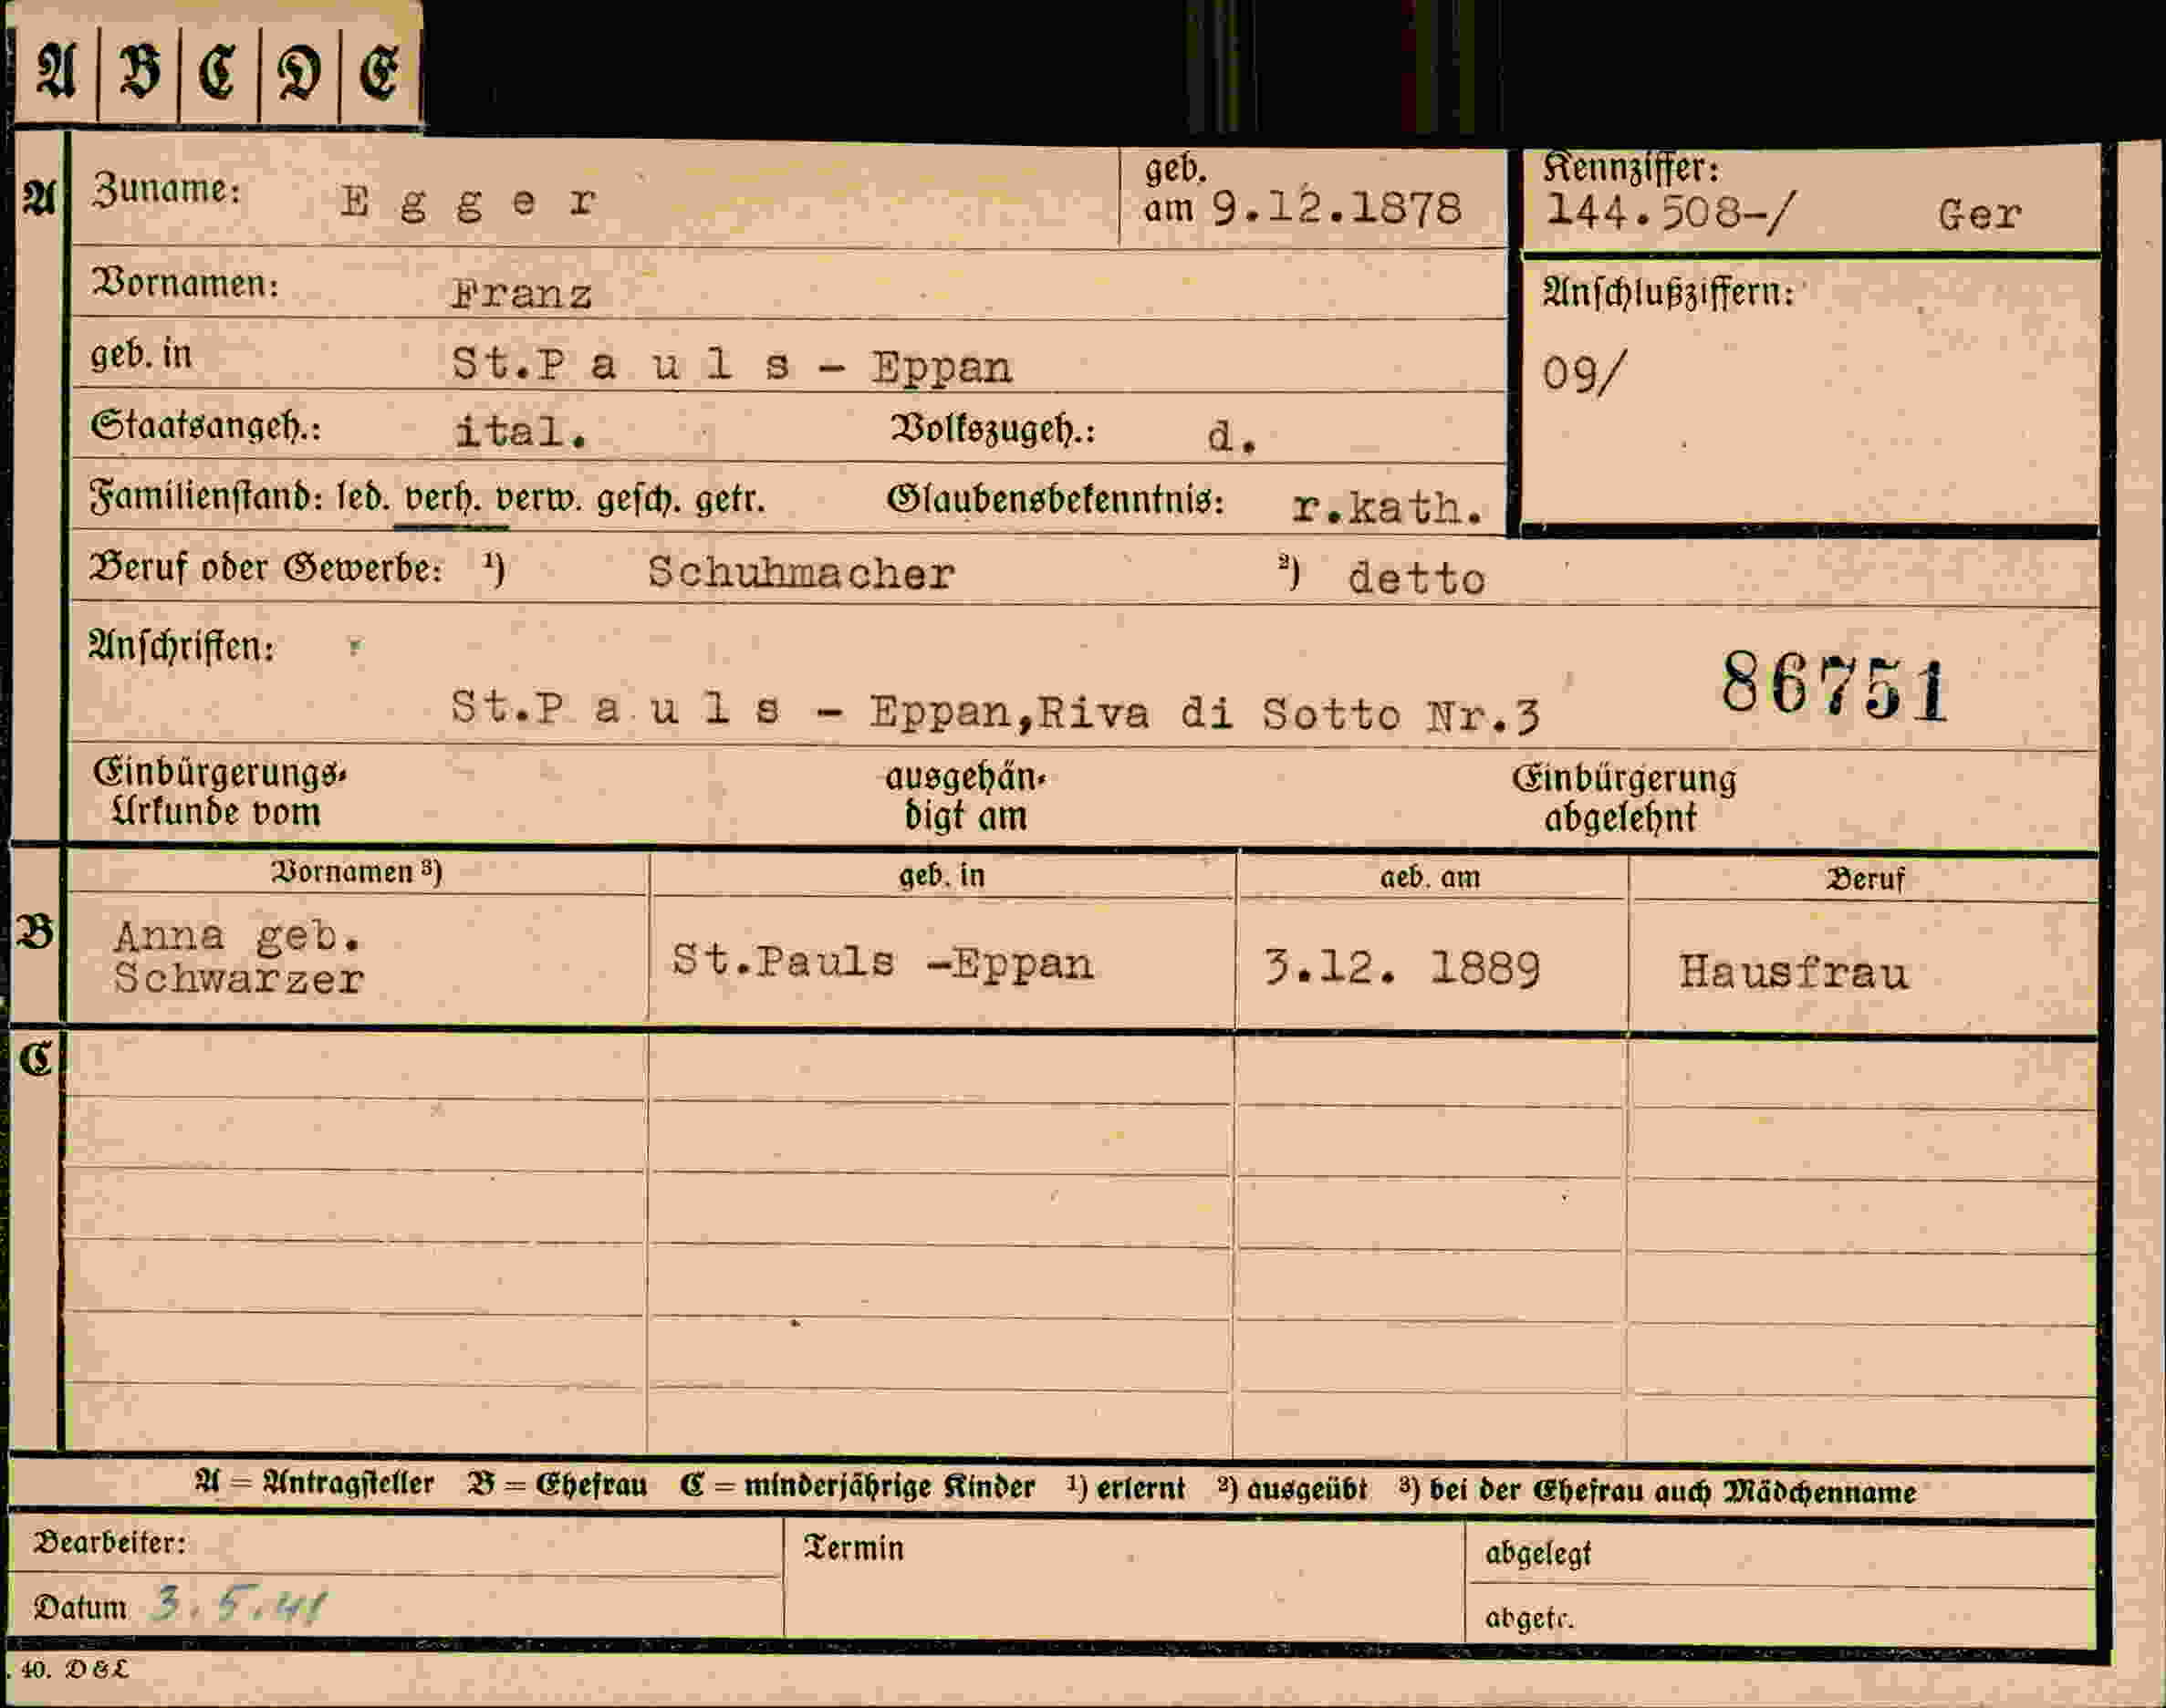 A B C D E
A Zuname: Egger geb. am 9.12.1878 Kennziffer: 144.508-/ Ger
Vornamen: Franz Anschlußziffern:
geb. in St.Pauls - Eppan 09/
Staatsangeh.: ital. Volkszugeh.: d.
Familienstand: led. verh. verw. gesch. getr. Glaubensbekenntnis: r.kath.
Beruf oder Gewerbe: ¹) Schuhmacher ²) detto
Anschriften: 86751
St.Pauls - Eppan,Riva di Sotto Nr.3
Einbürgerungs- ausgehän- Einbürgerung
Urkunde vom digt am abgelehnt
Vornamen ³) geb. in geb. am Beruf
B Anna geb. St.Pauls -Eppan 3.12. 1889 Hausfrau
Schwarzer
C
A = Antragsteller B = Ehefrau C = minderjährige Kinder ¹) erlernt ²) ausgeübt ³) bei der Ehefrau auch Mädchenname
Bearbeiter: Termin abgelegt
Datum 3.5.41 abgetr.
40. D & L